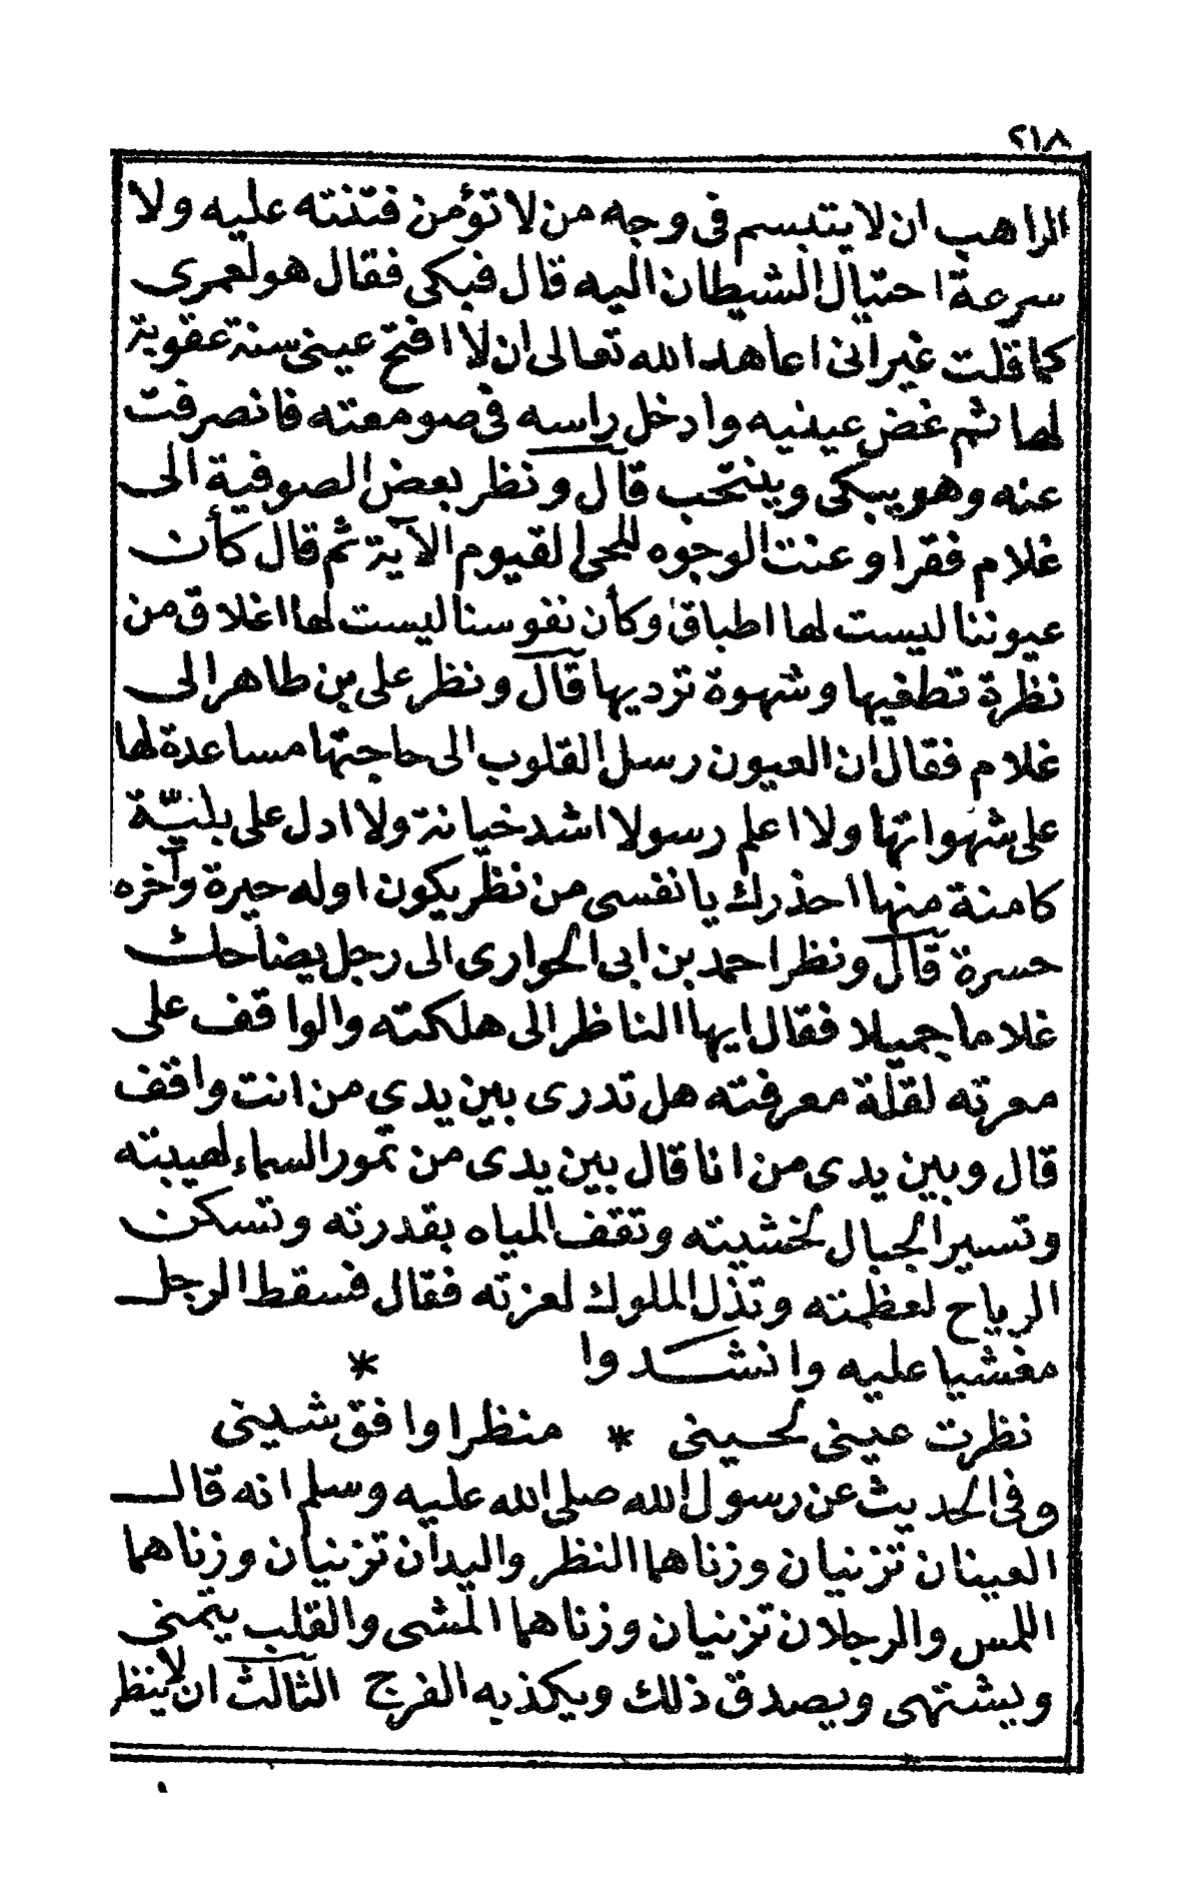 ٢١٨
الراهب ان لا يتبسم فى وجه من لا تؤمن فتنته عليه ولا
سرعة احتيال الشيطان اليه قال فبكى فقال هو لعمرى
كما قلت غير انى اعاهد الله تعالى ان لا افتح عينى سنة عقوبة
لها ثم غض عينيه وادخل راسه فى صومعته فانصرفت
عنه وهو يبكى وينتحب قال ونظر بعض الصوفية الى
غلام فقرا وعنت الوجوه للحى القيوم الآية ثم قال كأن
عيوننا ليست لها اطباق وكأن نفوسنا ليست لها اغلاق من
نظرة تطغيها وشهوة ترديها قال ونظر على بن طاهر الى
غلام فقال ان العيون رسل القلوب الى حاجتها مساعدة لها
على شهواتها ولا اعلم رسولا اشد خيانة ولا ادل على بلنيّة
كامنة منها احذرك يا نفسى من نظر يكون اوله حيرة وآخره
حسرة قال ونظر احمد بن ابى الحوارى الى رجل يضاحك
غلاما جميلا فقال ايها الناظر الى هلكته والواقف على
معرته لقلة معرفته هل تدرى بين يدي من انت واقف
قال وبين يدى من انا قال بين يدى من تمور السماء لهيبته
وتسير الجبال لخشيته وتقف المياه بقدرته وتسكن
الرياح لعظمته وتذل الملوك لعزته فقال فسقط الرجل
مغشيا عليه وانشدوا *
نظرت عينى لحينى * منظرا وافق شينى
وفى الحديث عن رسول الله صلى الله عليه وسلم انه قال
العينان تزنيان وزناهما النظر واليدان تزنيان وزناهما
اللمس والرجلان تزنيان وزناهما المشى والقلب يتمنى
ويشتهى ويصدق ذلك ويكذبه الفرج الثالث ان لا ينظر